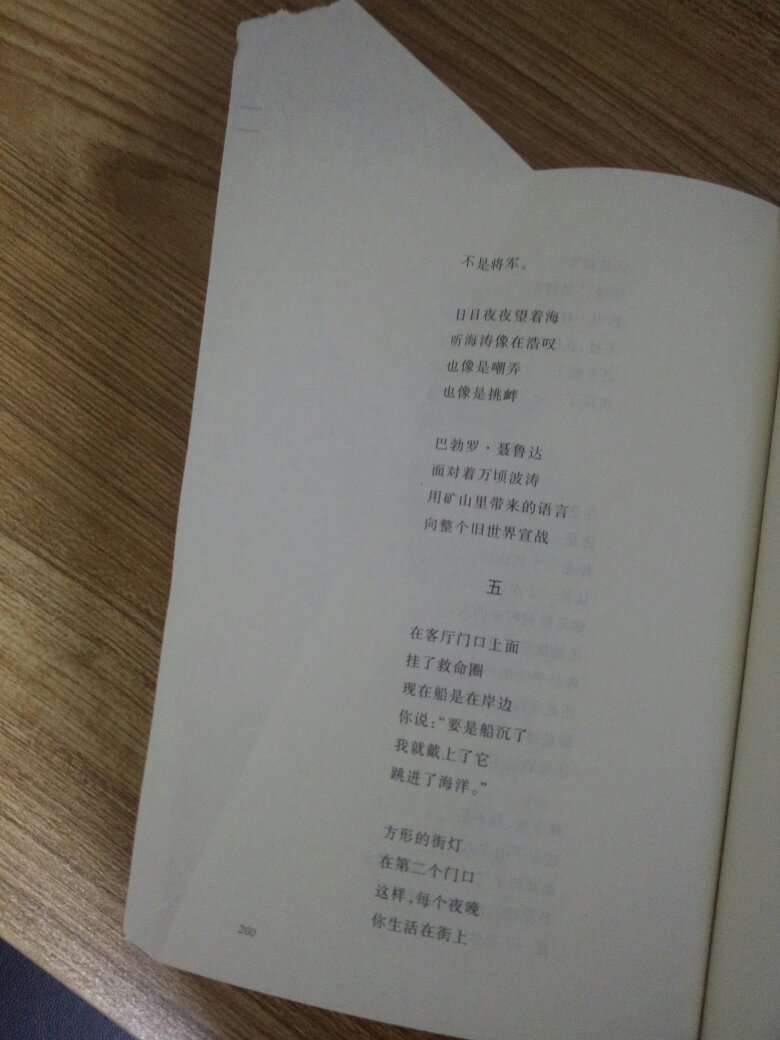 不是将军。
日日夜夜望着海
听海涛像在浩叹
也像是嘲弄
也像是挑衅
巴勃罗·聂鲁达
面对着万顷波涛
用矿山里带来的语言
向整个旧世界宣战
五
在客厅门口上面
挂了救命圈
现在船是在岸边
你说：“要是船沉了
我就戴上了它
跳进了海洋。”
方形的街灯
在第二个门口
这样，每个夜晚
你生活在街上
200